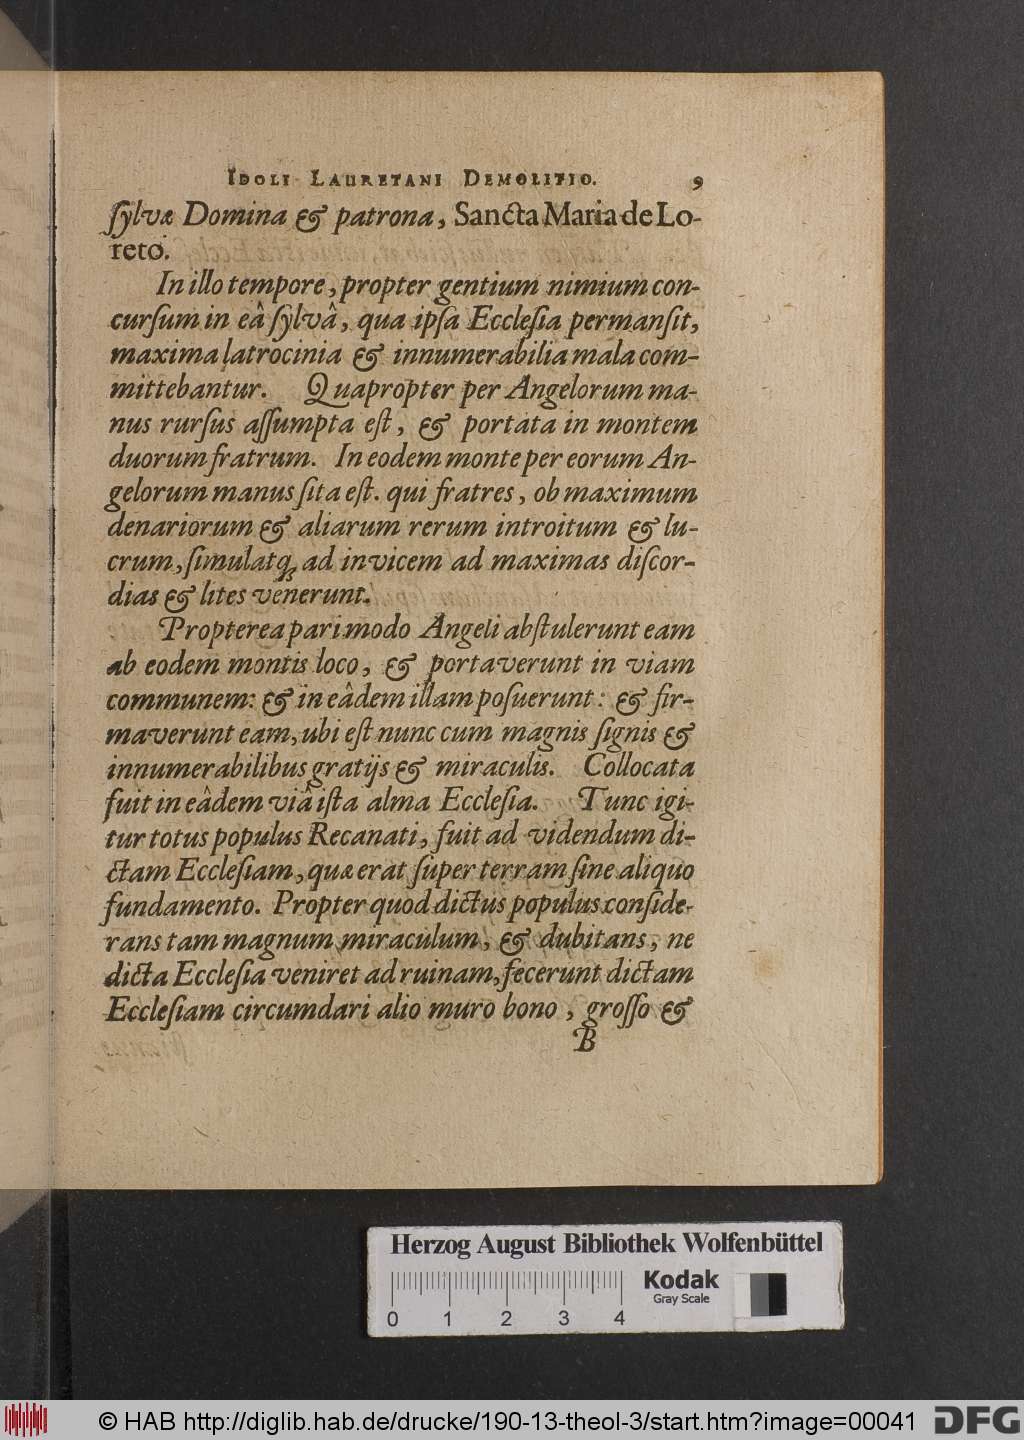 IDOLI LAURETANI DEMOLITIO. 9
ſylvæ Domina & patrona, Sancta Maria de Lo-
reto.
In illo tempore, propter gentium nimium con-
curſum in eâ ſylvâ, qua ipſa Eccleſia permanſit,
maxima latrocinia & innumerabilia mala com-
mittebantur. Quapropter per Angelorum ma-
nus rurſus aſſumpta eſt, & portata in montem
duorum fratrum. In eodem monte per eorum An-
gelorum manus ſita eſt. qui fratres, ob maximum
denariorum & aliarum rerum introitum & lu-
crum, ſimulatq; ad invicem ad maximas diſcor-
dias & lites venerunt.
Propterea pari modo Angeli abſtulerunt eam
ab eodem montis loco, & portaverunt in viam
communem: & in eâdem illam poſuerunt: & fir-
maverunt eam, ubi eſt nunc cum magnis ſignis &
innumerabilibus gratijs & miraculis. Collocata
fuit in eâdem viâ iſta alma Eccleſia. Tunc igi-
tur totus populus Recanati, fuit ad videndum di-
ctam Eccleſiam, quæ erat ſuper terram ſine aliquo
fundamento. Propter quod dictus populus conſide-
rans tam magnum miraculum, & dubitans, ne
dicta Eccleſia veniret ad ruinam, fecerunt dictam
Eccleſiam circumdari alio muro bono, groſſo &
B
Herzog August Bibliothek Wolfenbüttel
0 1 2 3 4
Kodak
Gray Scale
© HAB http://diglib.hab.de/drucke/190-13-theol-3/start.htm?image=00041
DFG